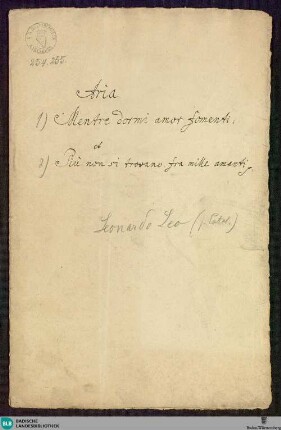 254, 255.
Aria
1) Mentre dormi amor fomenti.
et
2) Più non si trovano fra mille amanti
Leonardo Leo
BLB BADISCHE
LANDESBIBLIOTHEK
Baden-Württemberg